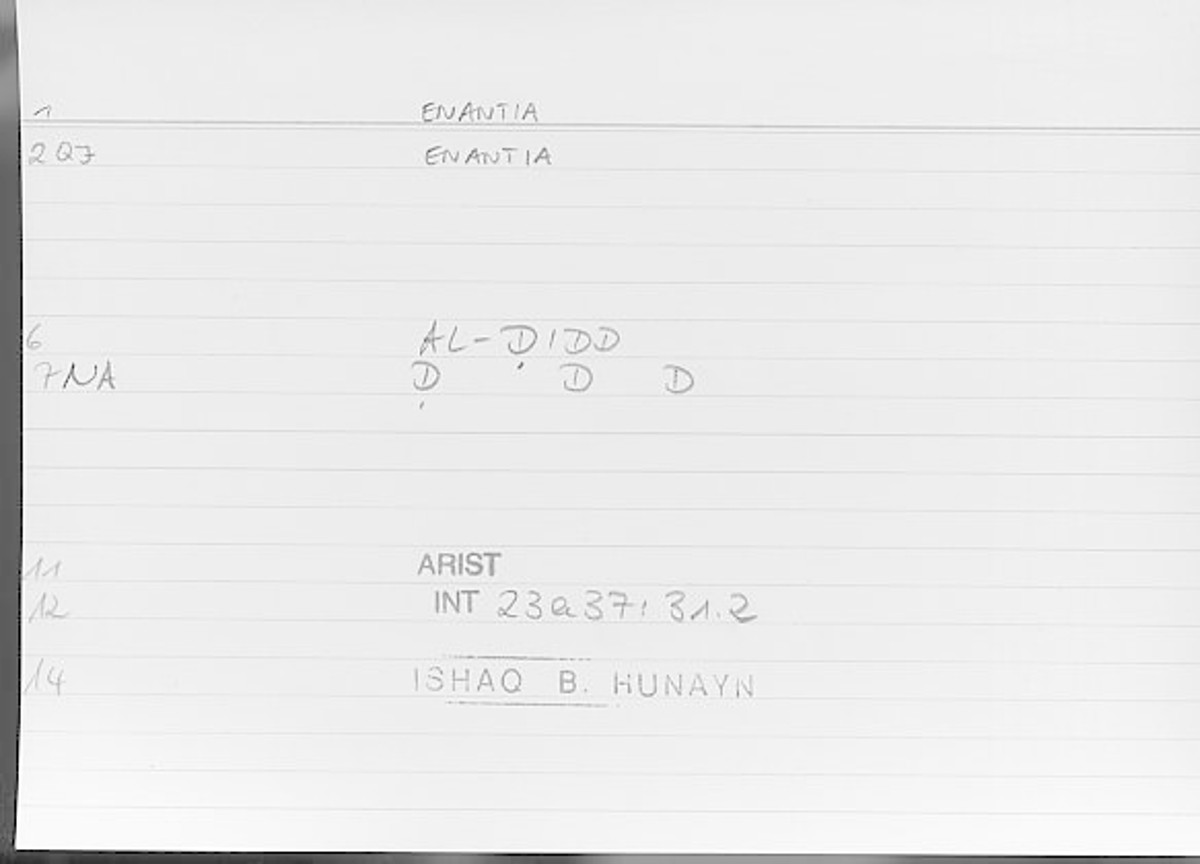 1 ENANTIA
2 Q7 ENANTIA
6 AL-ḌIDD
7 NA Ḍ D D
11 ARIST
12 INT 23a37; 31.2
14 ISHAQ B. HUNAYN